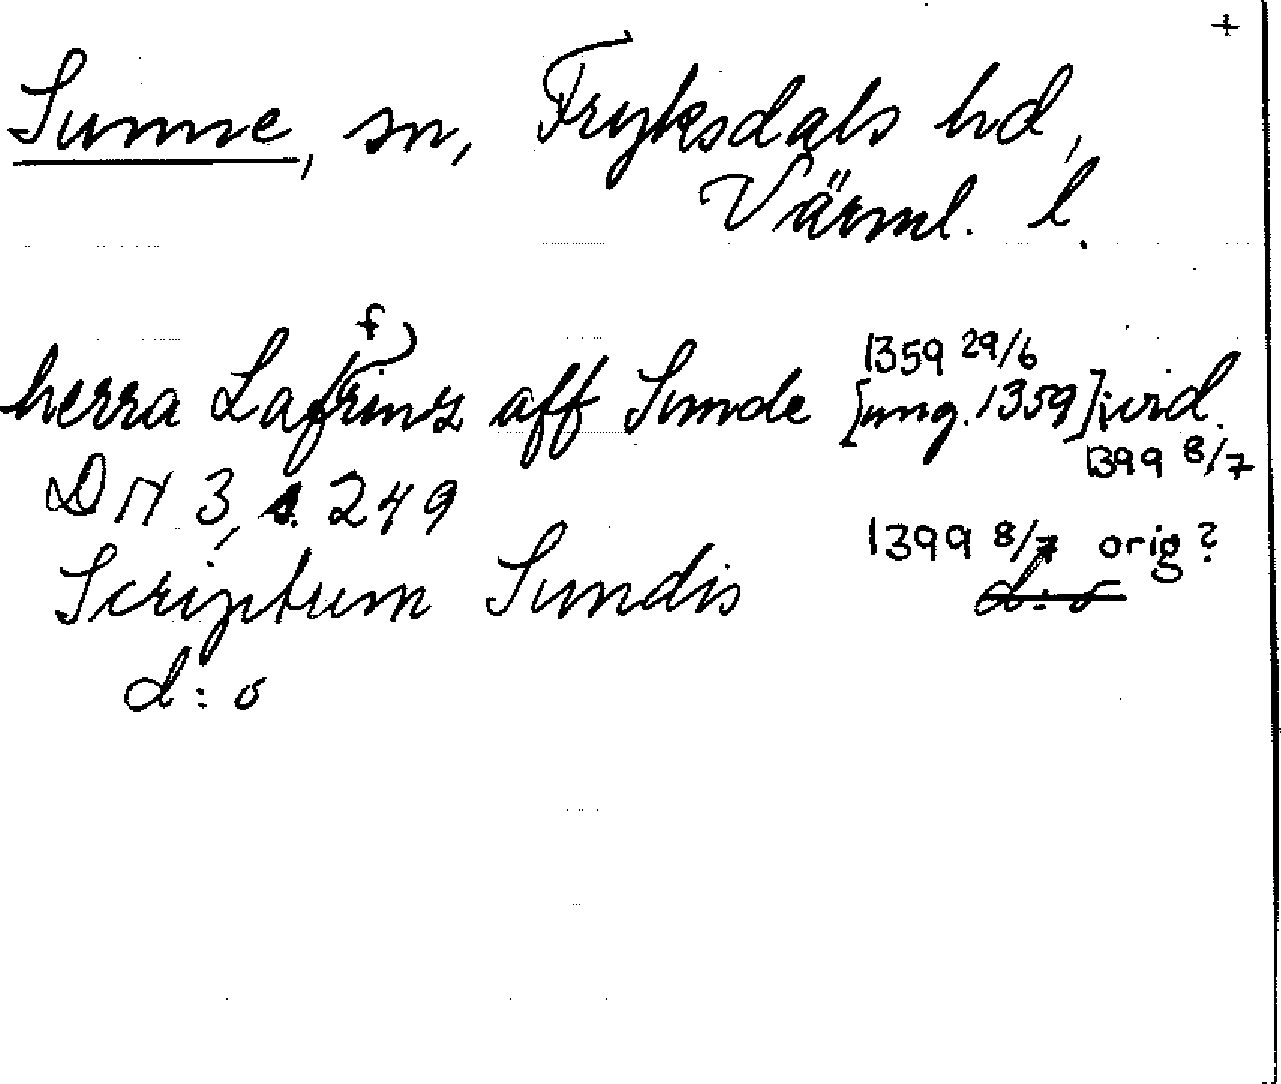 +
Sunne, sn, Fryksdals hd,
Värml. l.
f
herra Lafrinz aff Sunde [ung. 1359] vid.
1359 29/6
1399 8/7
DN 3, s. 249
Scriptum Sundis 1399 8/7 orig?
d:o
d:o